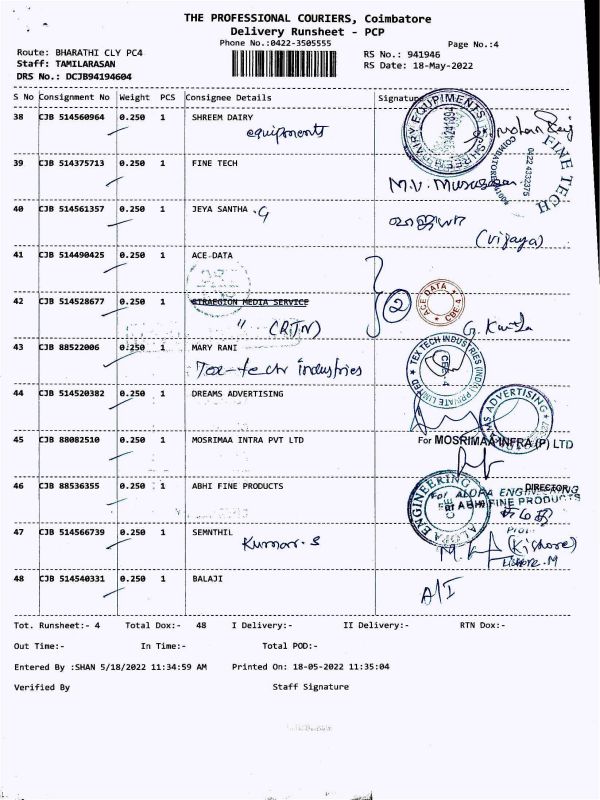 THE PROFESSIONAL COURIERS, Coimbatore
Delivery Runsheet - PCP
Phone No.:0422-3505555
Page No.:4
Route: BHARATHI CLY PC4
RS No.: 941946
Staff: TAMILARASAN
RS Date: 18-May-2022
DRS No.: DCJB94194604
S No Consignment No Weight PCS Consignee Details Signature
38 CJB 514560964 0.250 1 SHREEM DAIRY
equipments
39 CJB 514375713 0.250 1 FINE TECH
FINE TECH
0422 4332375
40 CJB 514561357 0.250 1 JEYA SANTHA .G
(vijaya)
41 CJB 514490425 0.250 1 ACE DATA
ACE DATA
CBE 4
2
42 CJB 514528677 0.250 1 STRAEGION MEDIA SERVICE
" (RTN)
43 CJB 88522006 0.250 1 MARY RANI
Tex-tech industries
TEX TECH INDUSTRIES (INDIA) PRIVATE LIMITED
44 CJB 514520382 0.250 1 DREAMS ADVERTISING
ADVERTISING
45 CJB 88082510 0.250 1 MOSRIMAA INTRA PVT LTD
For MOSRIMAA INFRA (P) LTD
DIRECTOR
46 CJB 88536355 0.250 1 ABHI FINE PRODUCTS
For ALOPA ENGINEERING
For ABHI FINE PRODUCTS
ALOPA ENGINEERING
47 CJB 514566739 0.250 1 SEMNTHIL
Kumar. S
(Kishore)
Kishore. M
48 CJB 514540331 0.250 1 BALAJI
A/I
Tot. Runsheet:- 4 Total Dox:- 48 I Delivery:- II Delivery:- RTN Dox:-
Out Time:- In Time:- Total POD:-
Entered By :SHAN 5/18/2022 11:34:59 AM Printed On: 18-05-2022 11:35:04
Verified By Staff Signature